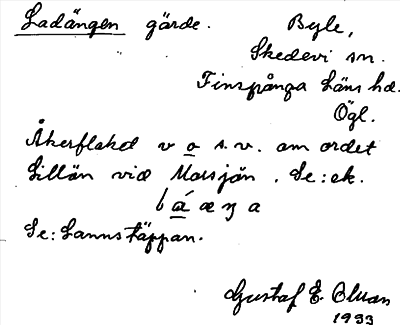 Ladängen gärde. Byle,
Skedevi sn.
Finspånga Läns hd.
Ögl.
Åkerflakd v o s.v. om ordet
Lillån vid Morsjön. Se: ek.
Se: Lannstäppan.
Gustaf E.
1933